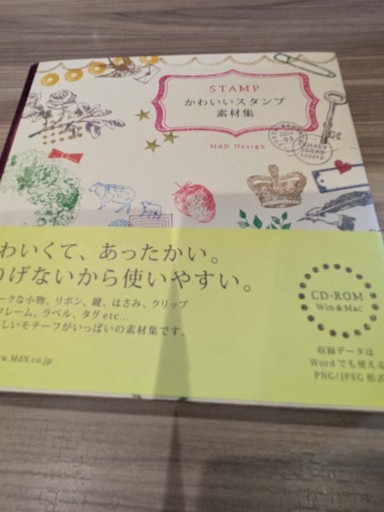 STAMP
かわいいスタンプ
素材集
MdN Design
わいくて、あったかい。
げないから使いやすい。
ークな小物、リボン、鍵、はさみ、クリップ
フレーム、ラベル、タグetc...
しいモチーフがいっぱいの素材集です。
www.MdN.co.jp
CD-ROM
Win & Mac
収録データは
Wordでも使える
PNG/JPEG 形式